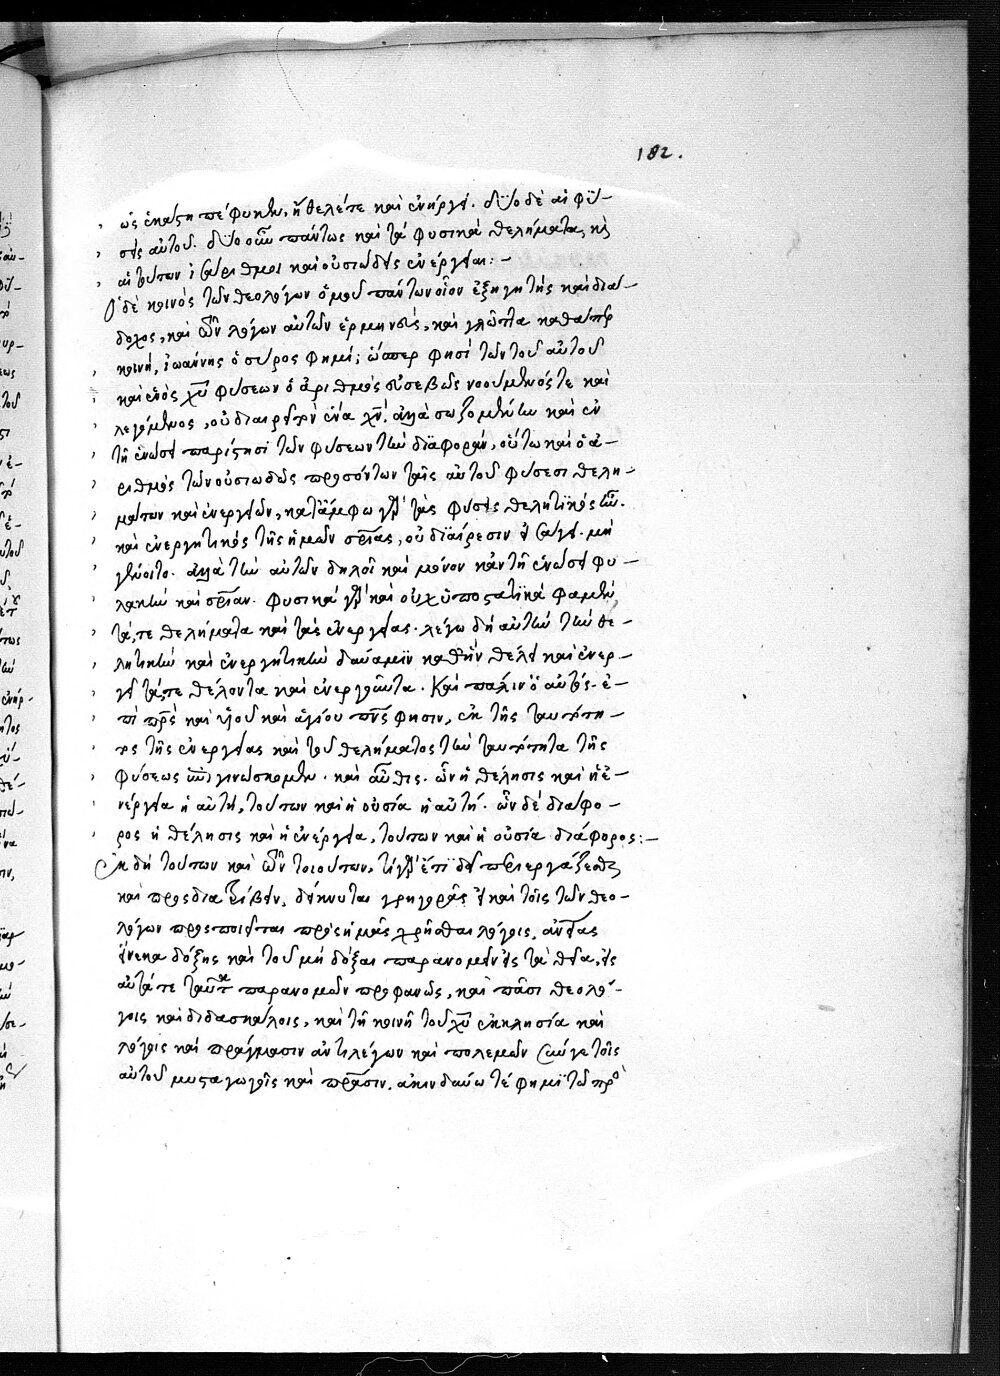 182.
ὡς ἑκάστη πέφυκεν, ἤθελέ τε καὶ ἐνήργει. δύο δὲ αἱ φύ-
σεις αὐτοῦ. δύο οὖν πάντως καὶ τὰ φυσικὰ θελήματα, καὶ
αἱ τούτων ἰσάριθμοι καὶ οὐσιώδεις ἐνέργειαι: -
Ὁ δὲ κοινὸς τῶν θεολόγων ὁμοῦ πάντων οἷον ἐξηγητὴς καὶ διά-
δοχος, καὶ τῶν λόγων αὐτῶν ἑρμηνεὺς, καὶ γλῶττα καθάπερ
κοινὴ, ἰωάννης ὁ σύρος φημί; ὥσπερ φησὶ τῶν τοῦ αὐτοῦ
καὶ ἑνὸς χυ φύσεων ὁ ἀριθμὸς εὐσεβῶς νοούμενός τε καὶ
λεγόμενος, οὐ διαιρεῖ τὸν ἕνα χν, ἀλλὰ σωζομένην καὶ ἐν
τῇ ἑνώσει παρίστησι τῶν φύσεων τὴν διαφορὰν, οὕτω καὶ ὁ ἀ-
ριθμὸς τῶν οὐσιωδῶς προσόντων ταῖς αὐτοῦ φύσεσι θελη-
μάτων καὶ ἐνεργειῶν, κατ' ἄμφω γὰρ τὰς φύσεις θελητικὸς ἦν
καὶ ἐνεργητικὸς τῆς ἡμῶν σρίας, οὐ διαίρεσιν εἰσάγει. μὴ
γένοιτο. ἀλλὰ τὴν αὐτῶν δηλοῖ καὶ μόνον κἂν τῇ ἑνώσει φυ-
λακὴν καὶ σρίαν. φυσικὰ γὰρ καὶ οὐχ ὑποστατικὰ φαμὲν
τά, τε θελήματα καὶ τὰς ἐνεργείας. λέγω δὴ αὐτὴν τὴν θε-
λητικὴν καὶ ἐνεργητικὴν δύναμιν καθ' ἣν θέλει καὶ ἐνερ-
γεῖ τά, τε θέλοντα καὶ ἐνεργοῦντα. Καὶ πάλιν ὁ αὐτός. ἐ-
πὶ πρς καὶ υἱοῦ καὶ ἁγίου πνς φησιν, ἐκ τῆς ταυτότη-
τος τῆς ἐνεργείας καὶ τοῦ θελήματος τὴν ταυτότητα τῆς
φύσεως ἐπιγινώσκομεν. καὶ αὖθις. ὧν ἡ θέλησις καὶ ἡ ἐ-
νέργεια ἡ αὐτὴ, τούτων καὶ ἡ οὐσία ἡ αὐτή. ὧν δὲ διάφο-
ρος ἡ θέλησις καὶ ἡ ἐνέργεια, τούτων καὶ ἡ οὐσία διάφορος: -
Ἐκ δὴ τούτων καὶ τῶν τοιούτων, τί γὰρ ἔτι δεῖ περιεργάζεσθαι
καὶ προσδιατρίβειν, δείκνυται γρηγορᾶς εἰ καὶ τοῖς τῶν θεο-
λόγων προσποιεῖται πρὸς ἡμᾶς χρῆσθαι λόγοις,
ἕνεκα δόξης καὶ τοῦ μὴ δόξαι παρανομεῖν εἰς τὰ θεῖα, εἰς
αὐτά τε ταῦτα παρανομῶν προφανῶς, καὶ πᾶσι θεολό-
γοις καὶ διδασκάλοις, καὶ τῇ κοινῇ τοῦ χυ ἐκκλησίᾳ καὶ
λόγοις καὶ πράγμασιν ἀντιλέγων καὶ πολεμῶν σὺν γε τοῖς
αὐτοῦ μυσταγωγοῖς καὶ πρᾶσιν, ἀκινδύνω τέ φημι τῷ προ